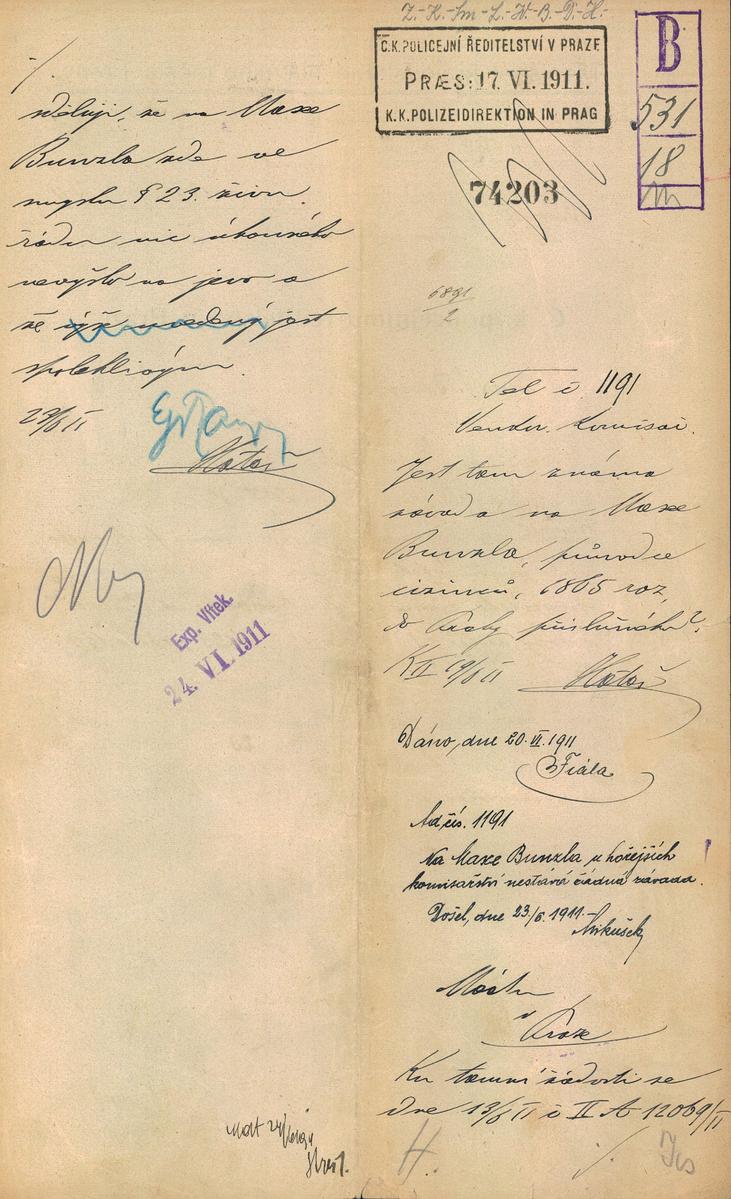 Z.-K.-Sm-L.-W.-B.-D.-H.-
Č.K. POLICEJNÍ ŘEDITELSTVÍ V PRAZE
PRÆS: 17. VI. 1911.
K.K. POLIZEIDIREKTION IN PRAG
B
531
18
74203
6891
2
Tel č. 1191
Vendov. Komisař.
Jest tam známa
závada na Maxe
Bunzla, průvodce
cizinců, 1865 roz,
do Prahy příslušného?
K II 19/6 11
Dáno, dne 20. VI. 1911
Fiala
Ad čís. 1191
Na Maxe Bunzla u hořejších
komisařství nestává žádná závada.
Došel, dne 23./6. 1911.
Mikušek
V Praze
Ku tamní žádosti se
dne 13/6 11 č II A 12069/11
./.
./.
sděluji, že na Maxe
Bunzla zde ve
smyslu § 23. živn.
řádu nic úhonného
nevyšlo na jevo a
že výše uvedený jest
spolehlivým.
23/6 11
Exp. Vítek.
24. VI. 1911